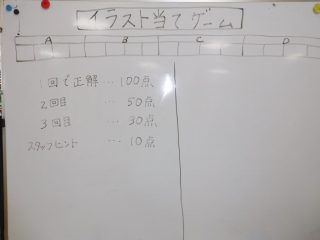 イラスト当てゲーム
A B C D
1回で正解 … 100点
2回目 … 50点
3回目 … 30点
スタッフヒント … 10点